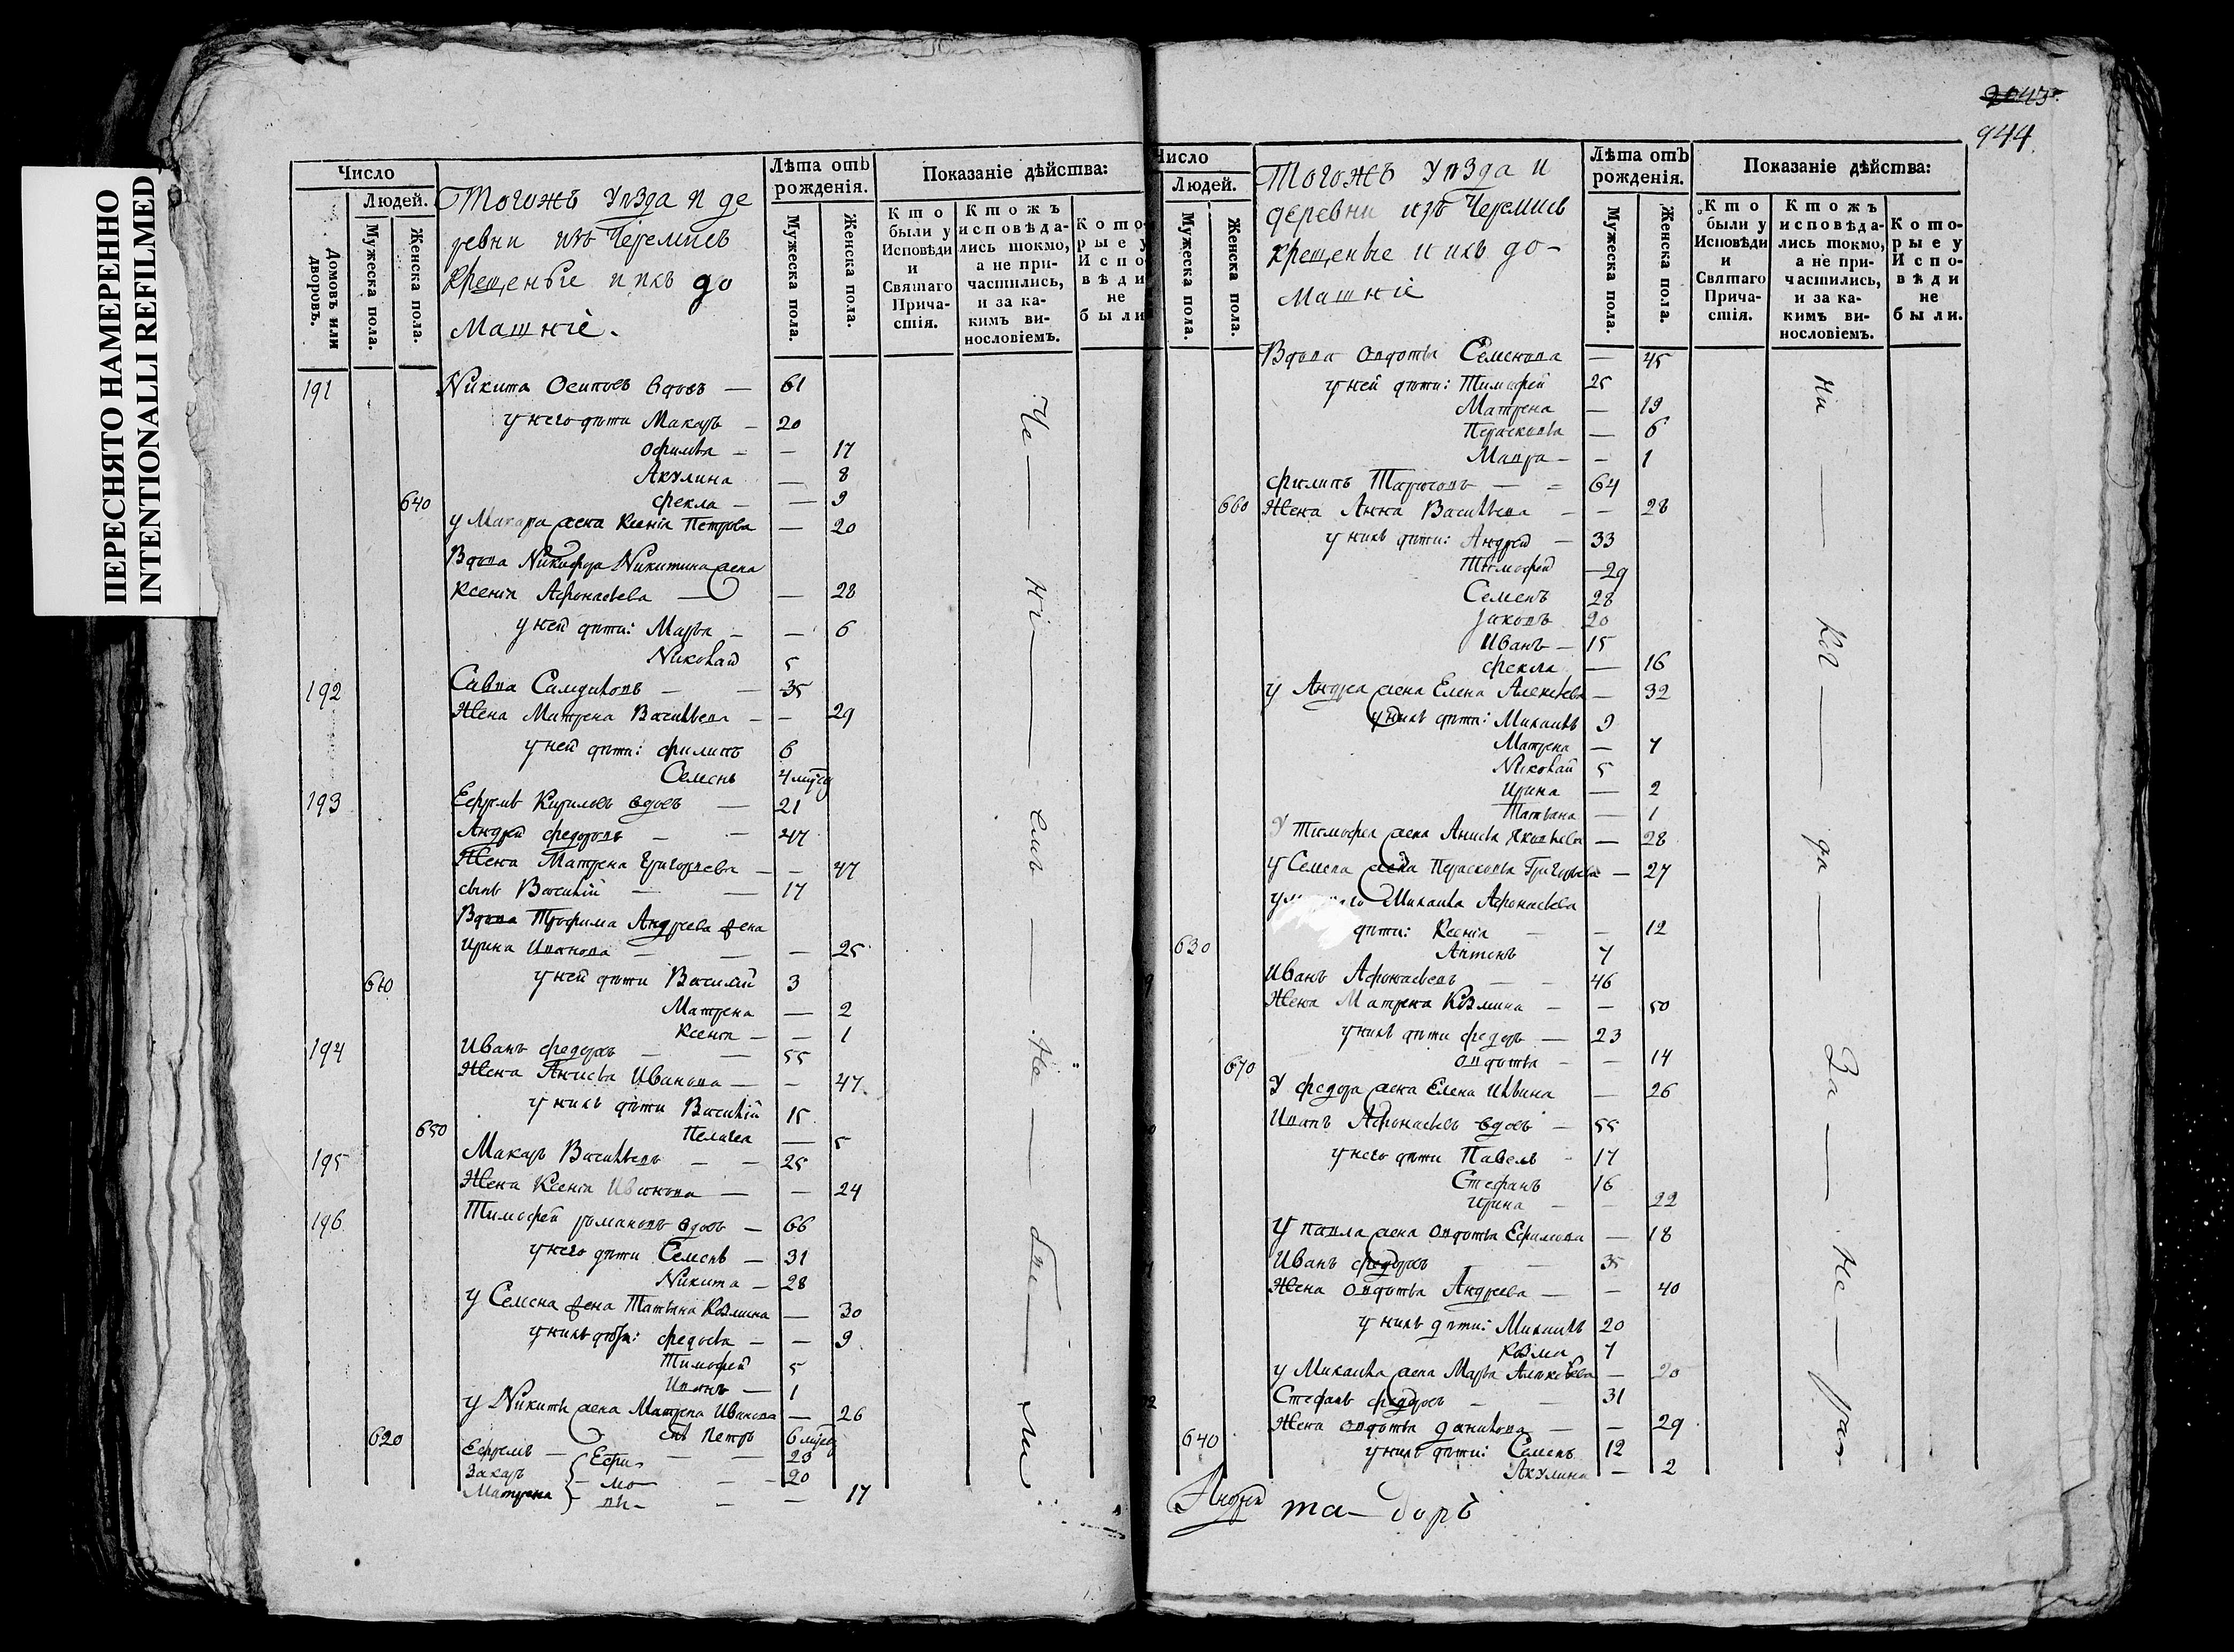 ПЕРЕСНЯТО НАМЕРЕННО
INTENTIONALLI REFILMED
Число
Людей.
Домовъ или дворовъ.
Мужеска пола.
Женска пола.
Тогожъ уѣзда и де
ревни изъ Черемисъ
крещеные и ихъ до
машніе.
Лѣта отъ рожденія.
Мужеска пола.
Женска пола.
Показаніе дѣйства:
Кто были у Исповѣди и Святаго Причастія.
Ктожъ исповѣдались токмо, а не причастились, и за какимъ винословіемъ.
Которые у Исповѣди не были
191 Никита Осиповъ вдовъ — 61
у него дѣти Макаръ — 20
Офимья — — 17
Акулина — 8
640 Фекла — — 9
у Макара жена Ксенія Петрова — 20
Вдова Никифора Никитина жена
Ксенія Афонасьева — — 28
у ней дѣти: Марья — — 6
Николай 5
192 Савва Самойловъ — — 35
Жена Матрена Васильева — — 29
у ней дѣти: Филипъ 6
Семенъ 4 мцсы
193 Ефремъ Кириловъ вдовъ — 21
Андрей Федоровъ — — 47
Жена Матрена Григорьева — — 47
сынъ Василій — — 17
Вдова Трофима Андреева жена
Ирина Иванова — — — 25
610 у ней дѣти Василій 3
Матрена — 2
Ксенія — — 1
194 Иванъ Федоровъ — — 55
Жена Анисья Иванова — — 47
у нихъ дѣти Василій 15
650 Пелагея — 5
195 Макаръ Васильевъ — — 25
Жена Ксенія Иванова — — 24
196 Тимофей Романовъ вдовъ — 66
у него дѣти Семенъ — 31
Никита — 28
у Семена жена Татьяна Козмина — 30
у нихъ дѣти: Федосья — — 9
Тимофей 5
Иванъ — 1
у Никиты жена Матрена Иванова — 26
620 снъ Петръ 6 мцсы
Ефремъ — Ефи- — — 23
Захаръ — мо- — — 20
Матрена — вы- — — 17
2043
944
Число
Людей.
Мужеска пола.
Женска пола.
Тогожъ уѣзда и
деревни изъ Черемисъ
крещеные и ихъ до-
машніе
Лѣта отъ рожденія.
Мужеска пола.
Женска пола.
Показаніе дѣйства:
Кто были у Исповѣди и Святаго Причастія.
Ктожъ исповѣдались токмо, а не причастились, и за какимъ винословіемъ.
Которые у Исповѣди не были.
Вдова Овдотья Семенова — 45
у ней дѣти: Тимофей 25
Матрена — 19
Парасковья — 6
Мавра — — 1
Филипъ — = 64
660 Жена Анна Васильева — — 28
у нихъ дѣти: Андрей — 33
Тимофей — 29
Семенъ 28
Яковъ 20
Иванъ — 15
Фекла — 16
у Андрея жена Елена Алексѣева — 32
у нихъ дѣти: Михаилъ 9
Матрена — 7
Николай 5
Ирина — 2
Татьяна — 1
У Тимофея жена Анисья Яковлева — 28
у Семена жена Парасковья Григорьева — 27
Михаила Афонасьева
дѣти: Ксенія — — 12
630 Антонъ 7
Иванъ Афонасьевъ — — 46
Жена Матрена Козмина — — 50
у нихъ дѣти Федоръ — 23
670 Овдотья — — 14
У Федора жена Елена Ильина — 26
Иванъ Афонасьевъ вдовъ — 55
у него дѣти Павелъ - 17
Стефанъ 16
Ирина — — 22
У Павла жена Овдотья Ефимова — 18
Иванъ Федоровъ — 35
Жена Овдотья Андреева — — 40
у нихъ дѣти: Михаилъ 20
Козма 7
у Михаила жена Марья Алексѣева — 20
Стефанъ Федоровъ — — 31
Жена Овдотья Данилова — — 29
640 у нихъ дѣти: Семенъ 12
Акулина — 2
Андрей та— боръ